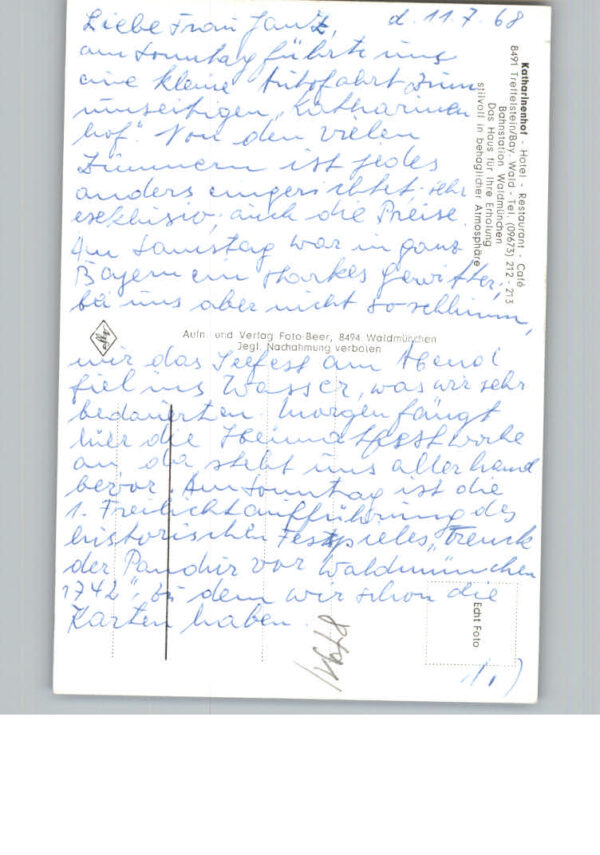 Liebe Frau Jantz, d. 11.7.68
am Sonntag führte uns
eine kleine Autofahrt zum
umseitigen „Katharinen
hof". Von den vielen
Zimmern ist jedes
anders eingerichtet, sehr
exklusiv, auch die Preise
Am Samstag war in ganz
Bayern ein starkes Gewitter,
bei uns aber nicht so schlimm,
nur das Seefest am Abend
fiel ins Wasser, was wir sehr
bedauerten. Morgen fängt
hier die Heimatfestwoche
an, da steht uns allerhand
bevor. Am Sonntag ist die
1. Freilichtaufführung des
historischen Festspieles „Trenck
der Pandur vor Waldmünchen
1742", zu dem wir schon die
Karten haben.
Katharinenhof - Hotel - Restaurant - Café
8491 Treffelstein/Bay. Wald - Tel. (09673) 212 - 213
Bahnstation Waldmünchen
Das Haus für Ihre Erholung
stilvoll in behaglicher Atmosphäre
Agfa
Aufn. und Verlag Foto-Beer, 8494 Waldmünchen
Jegl. Nachahmung verboten
Echt Foto
1.)